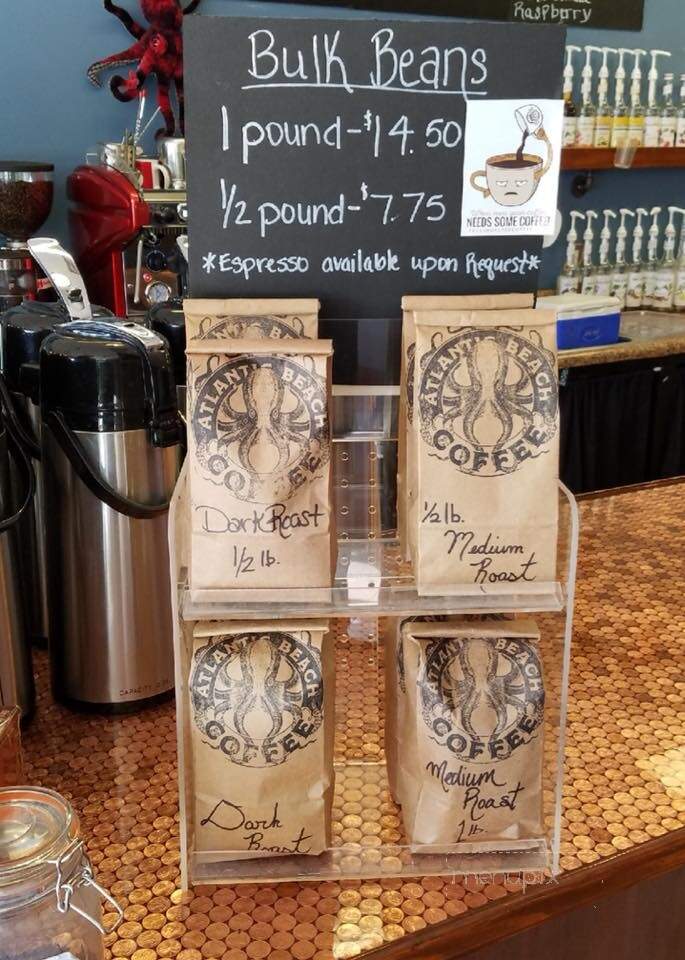 Raspberry
Bulk Beans
1 pound-$14.50
1/2 pound-$7.75
NEEDS SOME COFFEE!
*Espresso available upon Request*
ATLANTIC BEACH
COFFEE
Dark Roast
1/2 lb.
ATLANTIC BEACH
COFFEE
1/2 lb.
Medium
Roast
ATLANTIC BEACH
COFFEE
Dark
Roast
ATLANTIC BEACH
COFFEE
Medium
Roast
1 lb.
CAPACITY
menupix